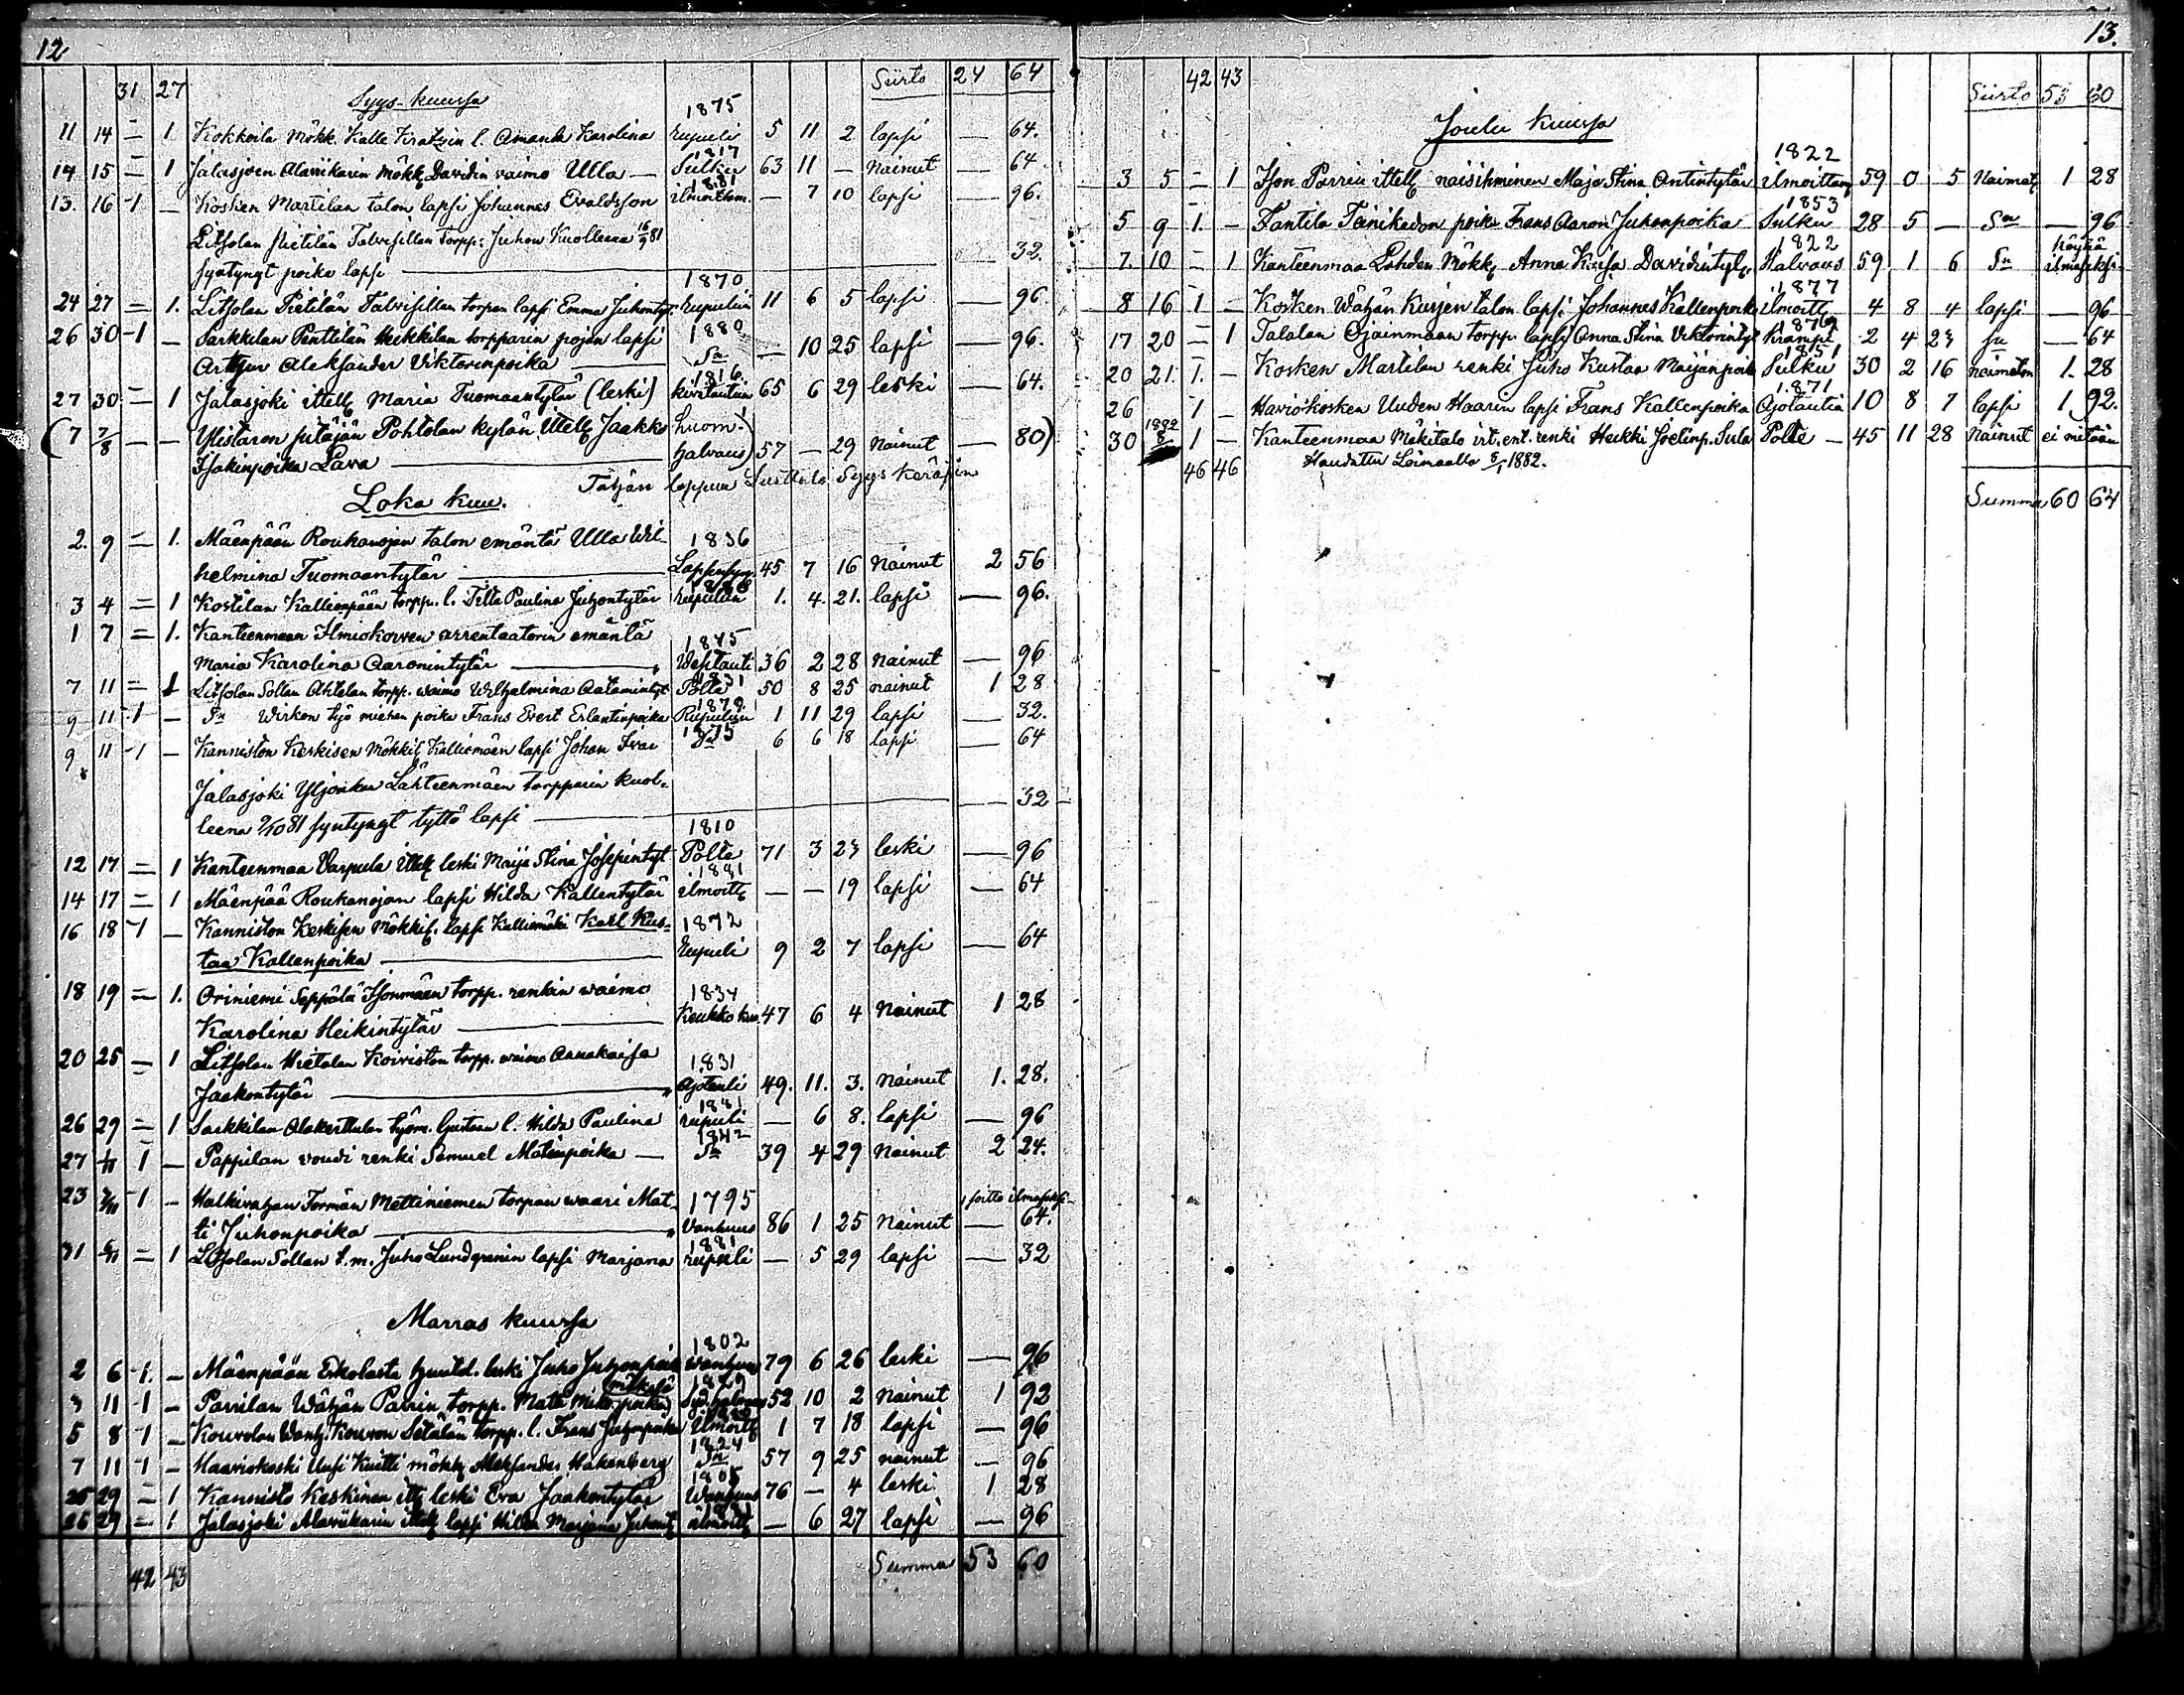 12
31 27 Siirto 24 64
Syys-kuussa
1875
11 14 = 1. Kokkoila Mökk. Kalle Kratzin l. Amanda Karolina rupuli 5 11 2 lapsi — 64.
1817
14 15 = 1 Jalasjoen Alawiikarin Mökk. Davidin vaimo Ulla — Sulku 63 11 — Nainut — 64.
1881
13. 16 1 — Kosken Martilan talon lapsi Johannes Evaldsson ilmoittam. — 7 10 lapsi — 96.
Litsolan Pietilän Talvisillan Torpp: Juhon Kuolleena 16/9 81
syntynyt poika lapsi — 32.
1870
24 27 = 1. Litsolan Pietilän Talvisillan torpan lapsi Emma Juhontyt. Rupuliin 11 6 5 lapsi — 96
1880
26 30 1 — Sarkkilan Penttilän Heikkilän torpparin pojan lapsi
Arthur Aleksander Viktorinpoika — Sn — 10 25 lapsi — 96.
1816
27 30 = 1 Jalasjoki ittell. Maria Tuomaantytär (leski) kivitautiin 65 6 29 leski — 64.
(7 7/8 — — Ylistaron pitäjän Pohtolan kylän Ittell. Jaakko (huom.
Isakinpoika Lava — halvaus) 57 — 29 Nainut — 80)
Tähän loppuu Luettulo Syys Käräjiin
Loka kuu.
2. 9 = 1. Mäenpään Roukanojan talon emäntä Ulla Wil- 1836
helmina Tuomaantytär — Lapsensyn. 45 7 16 Nainut 2 56
1880
3 4 = 1 Kostilan Kallionpään torpp. l. Tilta Paulina Juhontytär rupuliin 1. 4. 21. lapsi — 96.
1 7 = 1. Kanteenmaan Ilmiokorven arrentaatorin emäntä
1845
Maria Karolina Aaronintytär — Vesitauti 36 2 28 Nainut — 96
1831
7 11 = 1 Litsolan Sollan Ahtelan torpp. waimo Wilhelmina Aatamintyt. Polte 50 8 25 nainut 1 28
1879
9 11 1 — Sn Wirkon työ miehen poika Frans Evert Erlantinpoika Rupuliin 1 11 29 lapsi — 32.
1875
9 11 1 — Kanniston Keskisen Mökkil. Kalliomäen lapsi Johan Ivar Sn 6 6 18 lapsi — 64
Jalasjoki Yljoukan Lähteenmäen torpparin kuol-
leena 9/10 81 syntynyt tyttö lapsi — 32
1810
12 17 = 1 Kanteenmaa Varpula ittell. leski Maija Stina Josepintyt. Polte 71 3 23 leski — 96
1881
14 17 = 1 Mäenpää Roukanojan lapsi Hilda Kallentytär ilmoitt. — — 19 lapsi — 64
16 18 1 — Kanniston Keskisen Mökkil. lapsi Kalliomäki Karl Kus- 1872
taa Kallenpoika — Rupuli 9 2 7 lapsi — 64
18 19 = 1. Oriniemi Seppälä Isonmäen torpp. renkin waimo 1834
Karolina Heikintytär — Keuhko kuu. 47 6 4 Nainut 1 28
20 25 = 1 Litsolan Hietalan Koiviston torpp. waimo Annakaisa 1831
Jaakontytär — Ajotauti 49. 11. 3. Nainut 1. 28.
1881
26 29 = 1 Sarkkilan Alakerttulan työm. Gustaan l. Hilda Paulina rupuli — 6 8. lapsi — 96
1842
27 1/11 1 — Pappilan voudi renki Samuel Matinpoika — Sn 39 4 29 Nainut 2 24.
23 1 — Halkivahan Tormän Mettiniemen torpan waari Mat- 1795 soitto ilmaiseksi
ti Juhonpoika — Vanhuus 86 1 25 Nainut — 64.
1881
31 6/11 = 1 Litsolan Sollan t.m. Juho Lundgrenin lapsi Marjana rupuli — 5 29 lapsi — 32
Marras kuussa
1802
2 6 1. — Mäenpään Erkolasta huutd. leski Juho Juhonpoik. wanhuus 79 6 26 leski — 96
3 11 1 — Parrilan Wähän Parrin torpp. Matti Mikonpoika 52 10 2 Nainut 1 92
5 8 1 — Kourolan Wanh. Kouron Setälän torpp. l. Frans Juhonpoika Ilmoitt. 1 7 18 lapsi — 96
1824
7 11 1 — Haaviokoski Uusi Kuitti mökk. Aleksander Hakenberg Sn 57 9 25 nainut — 96
1805
25 29 = 1 Kannisto Keskinen itt. leski Eva Jaakontytär Wanhuus 76 — 4 leski 1 28
1881
26 29 = 1 Jalasjoki Alawiikarin ittell. lapsi Hilda Marjana Juhont. ilmoitt. — 6 27 lapsi — 96
42 43 Summa 53 60
13.
42 43 Siirto 53 60
Joulu kuussa
1822
3 5 = 1 Ison Parrin ittell. naisihminen Maja Stina Antintytär ilmoittam. 59 0 5 Naimat. 1 28
1853
5 9 1. — Tantila Teinikedon poika Frans Aaron Juhonpoika Sulku 28 5 — Sn — 96
1822
7. 10 = 1 Kanteenmaa Lahden Mökk. Anna Kaisa Davidintyt. Halvaus 59 1 6 Sn köyhä ilmaiseksi
1877
8 16 1 — Kosken Wähän Kurjen talon lapsi Johannes Kallenpoika ilmoitt. 4 8 4 lapsi — 96
1879
17 20 — 1 Talalan Ojainmaan torpp. lapsi Anna Stina Viktorintyt. Kramp. 2 4 23 Sn — 64
1851
20 21. 1. — Kosken Martilan renki Juho Kustaa Maijanpoik. Sulku 30 2 16 naimaton 1. 28
1871
26 1 — Haviokosken Uuden Haarin lapsi Frans Kallenpoika Ajotautia 10 8 7 lapsi 1 92.
30 1882 1 — Kanteenmaa Mäkitalo irt. ent. renki Heikki Joelinp. Sula Polte — 45 11 28 Nainut ei mitään
46 46 Haudattu Loimaalla 8/1 1882.
Summa 60 64